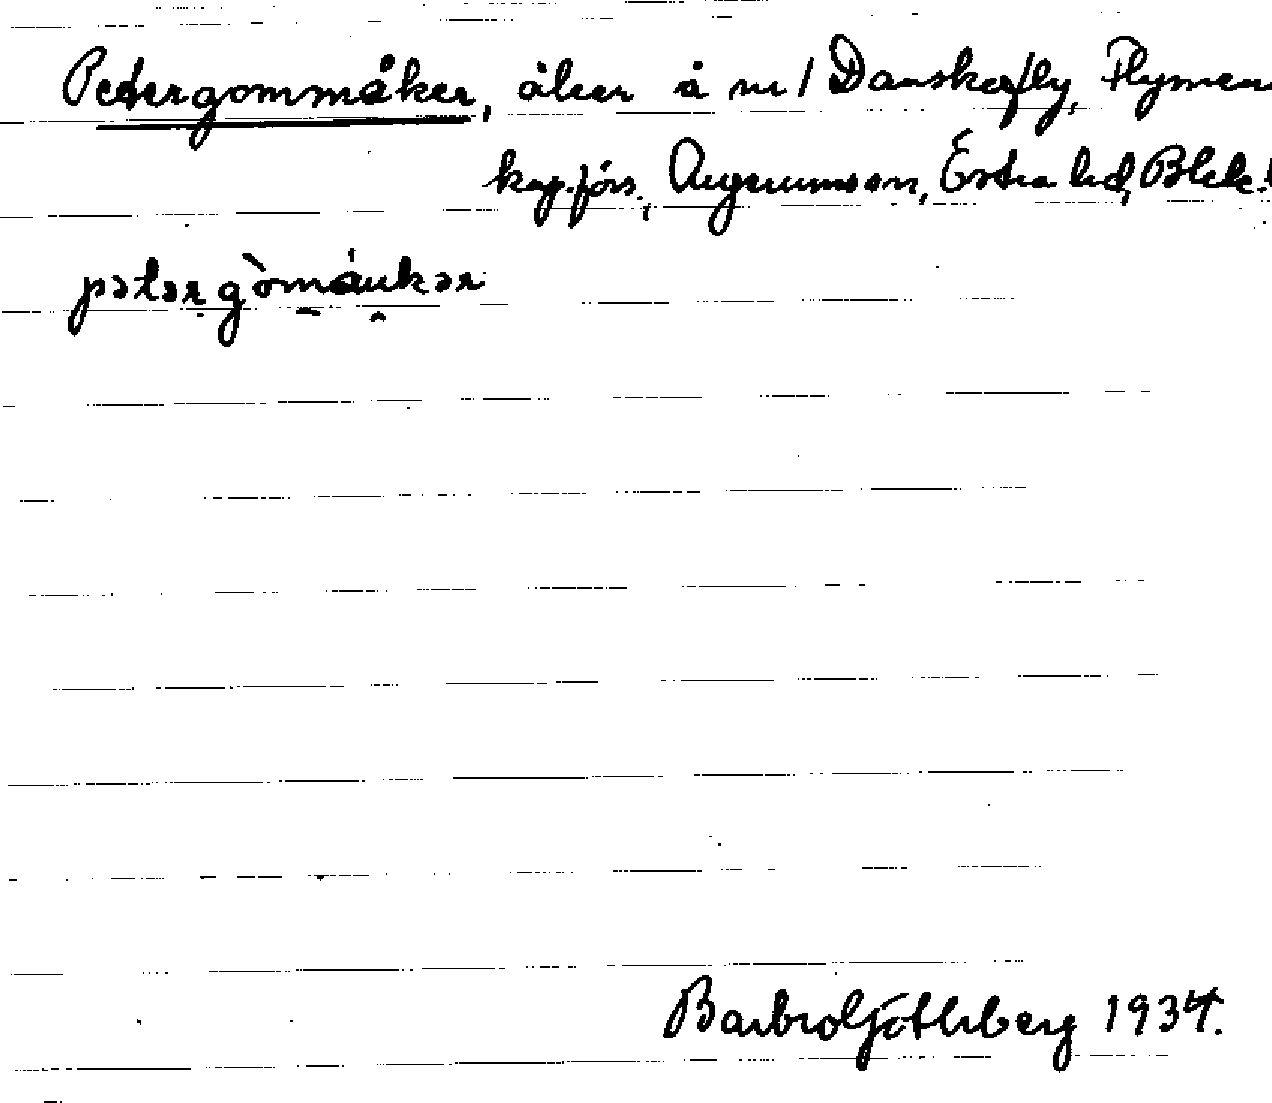 Petergommåker, åker å nr 1 Danskafly, Flymen
kap.förs., Augerumson, Östra hd, Blek.
pətər gòmáukər
Barbro Göthberg 1934.